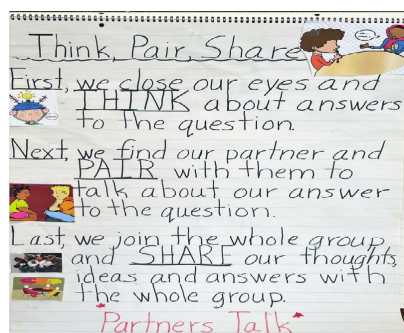 Think, Pair, Share
First, we close our eyes and
THINK about answers
to the question.
Next, we find our partner and
PAIR with them to
talk about our answer
to the question.
Last, we join the whole group
and SHARE our thoughts,
ideas and answers with
the whole group.
Partners Talk